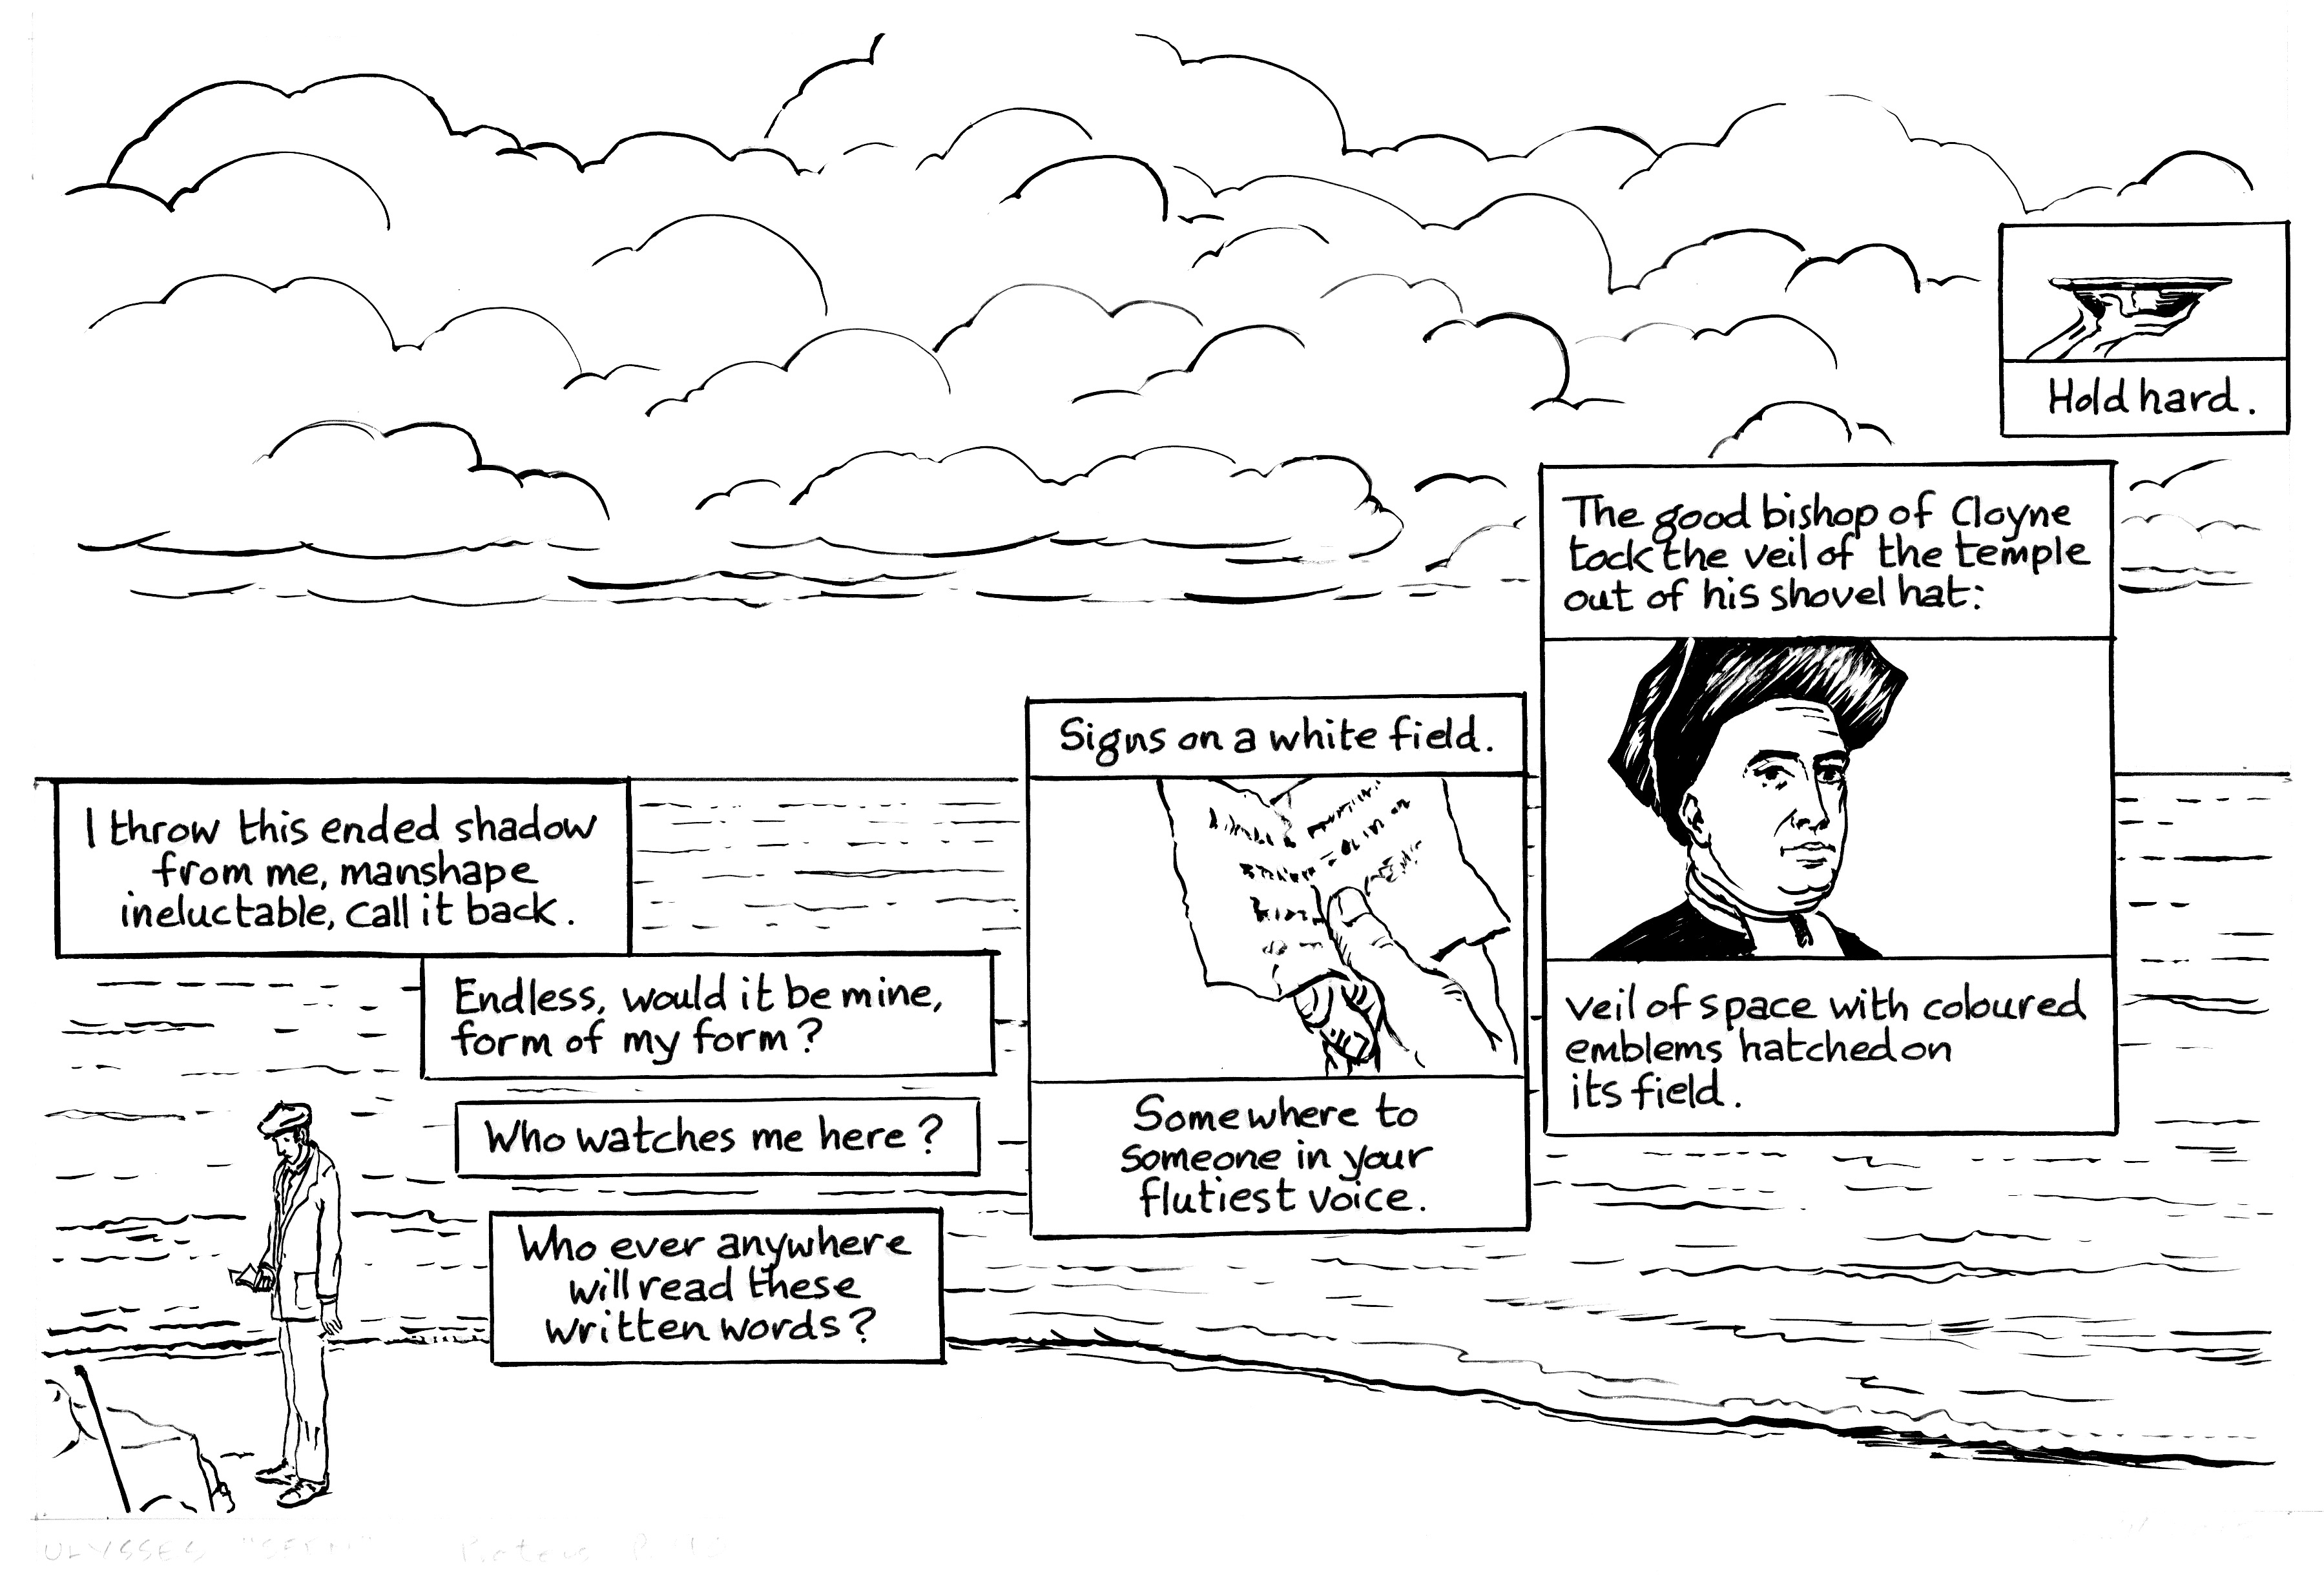 I throw this ended shadow
from me, manshape
ineluctable, call it back.
Endless, would it be mine,
form of my form?
Who watches me here?
Who ever anywhere
will read these
written words?
Signs on a white field.
Somewhere to
someone in your
flutiest voice.
The good bishop of Cloyne
took the veil of the temple
out of his shovel hat:
veil of space with coloured
emblems hatched on
its field.
Hold hard.
ULYSSES "SEEN" Proteus